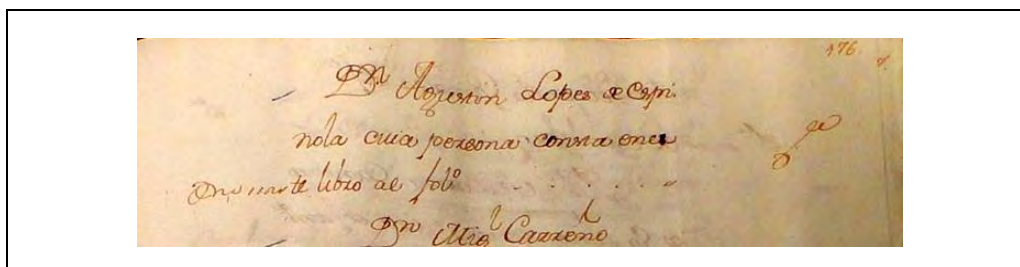 176.
Dn. Agustin Lopes de Espi
nola cuia persona consta en el
libro al folo . . . . . .
Dn Migl Carreño